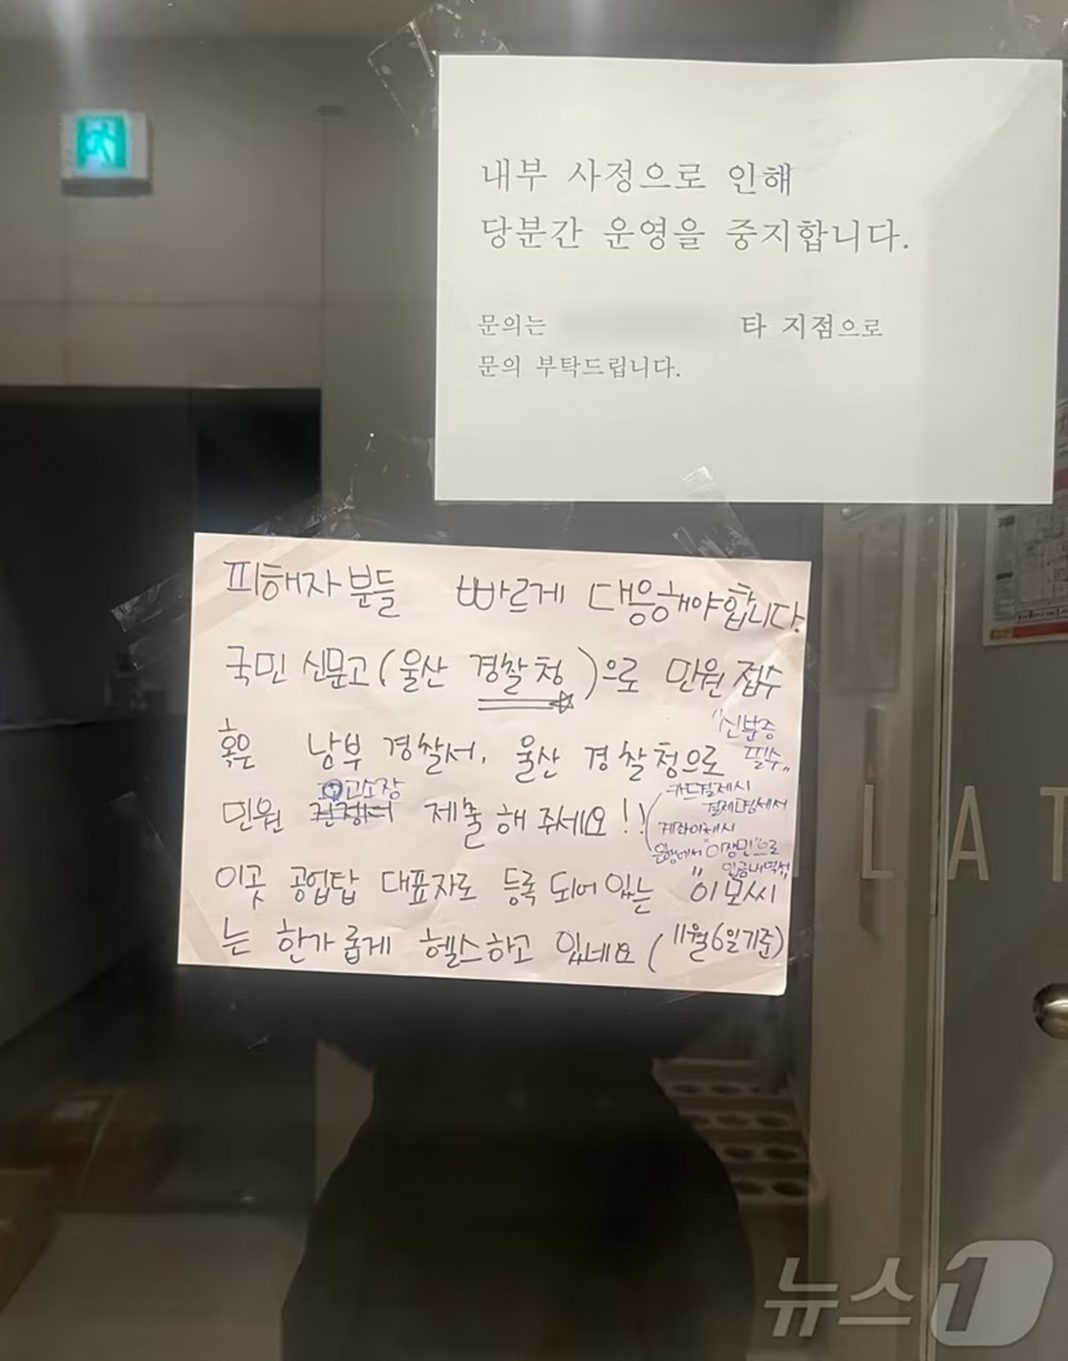 내부 사정으로 인해
당분간 운영을 중지합니다.
문의는 타 지점으로
문의 부탁드립니다.
피해자분들 빠르게 대응해야합니다.
국민 신문고(울산 경찰청)으로 민원 접수
혹은 남부 경찰서, 울산 경찰청으로 "신분증 필수"
민원 고소장 제출 해 주세요!!
(카드결제시
결제명세서
계좌이체시
은행에서 "이장민"으로
입금내역서)
이곳 공업탑 대표자로 등록 되어 있는 "이모씨"
는 한가롭게 헬스하고 있네요 (11월6일기준)
LAT
뉴스1